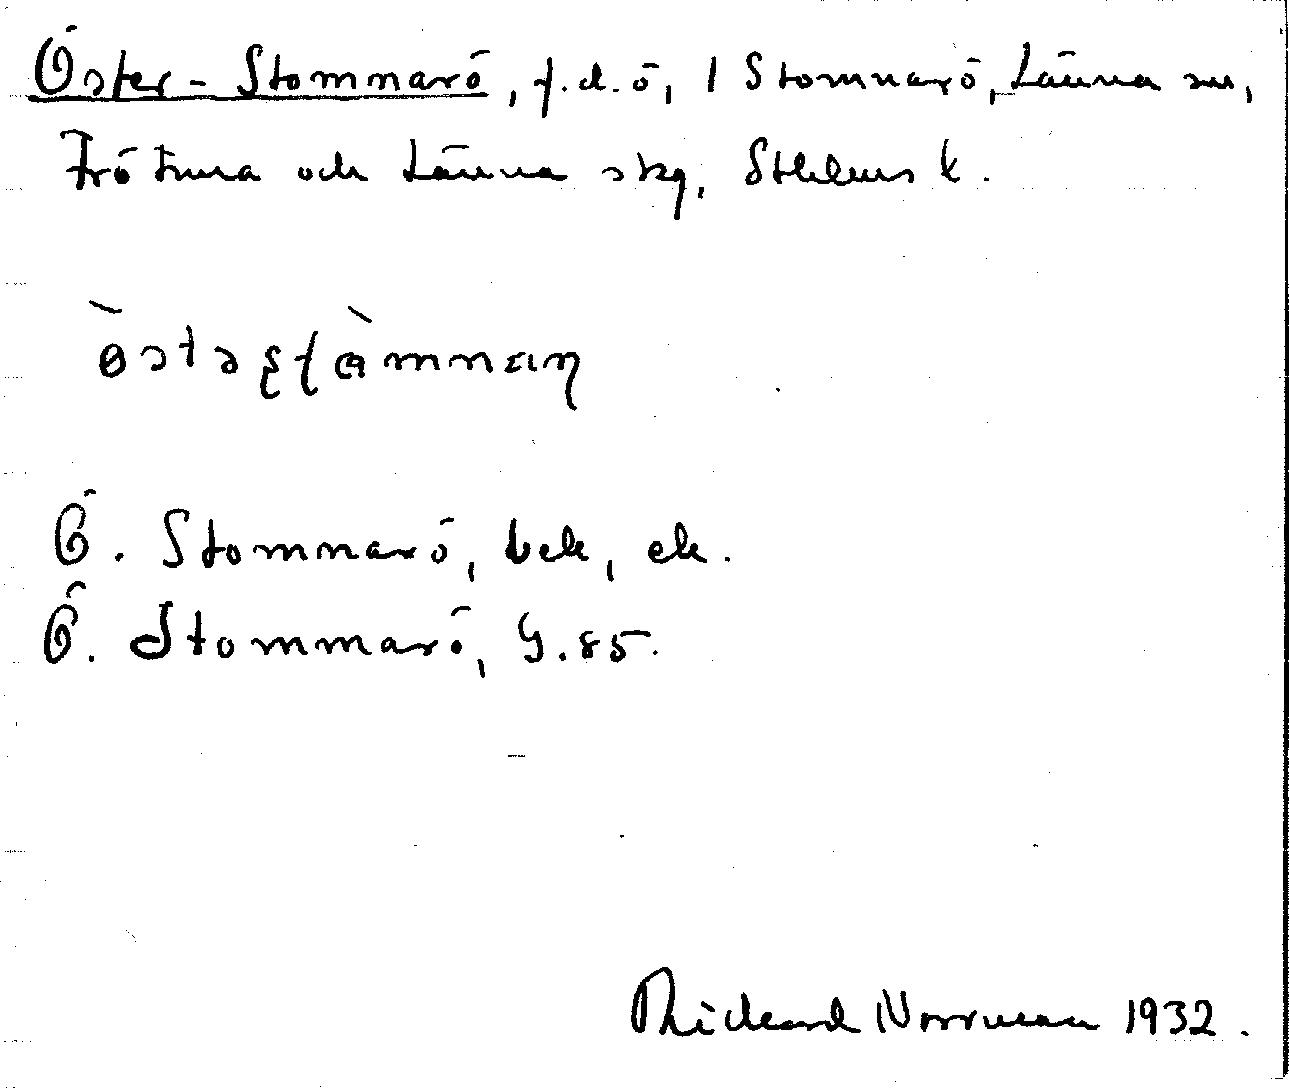 Öster-Stommarö, f.d. ö, 1 Stommarö, Länna sn,
Frötuna och Länna skg, Sthlms l.
Ö. Stommarö, bek, ek.
Ö. Stommarö, G.85.
Rickard Norrman 1932.